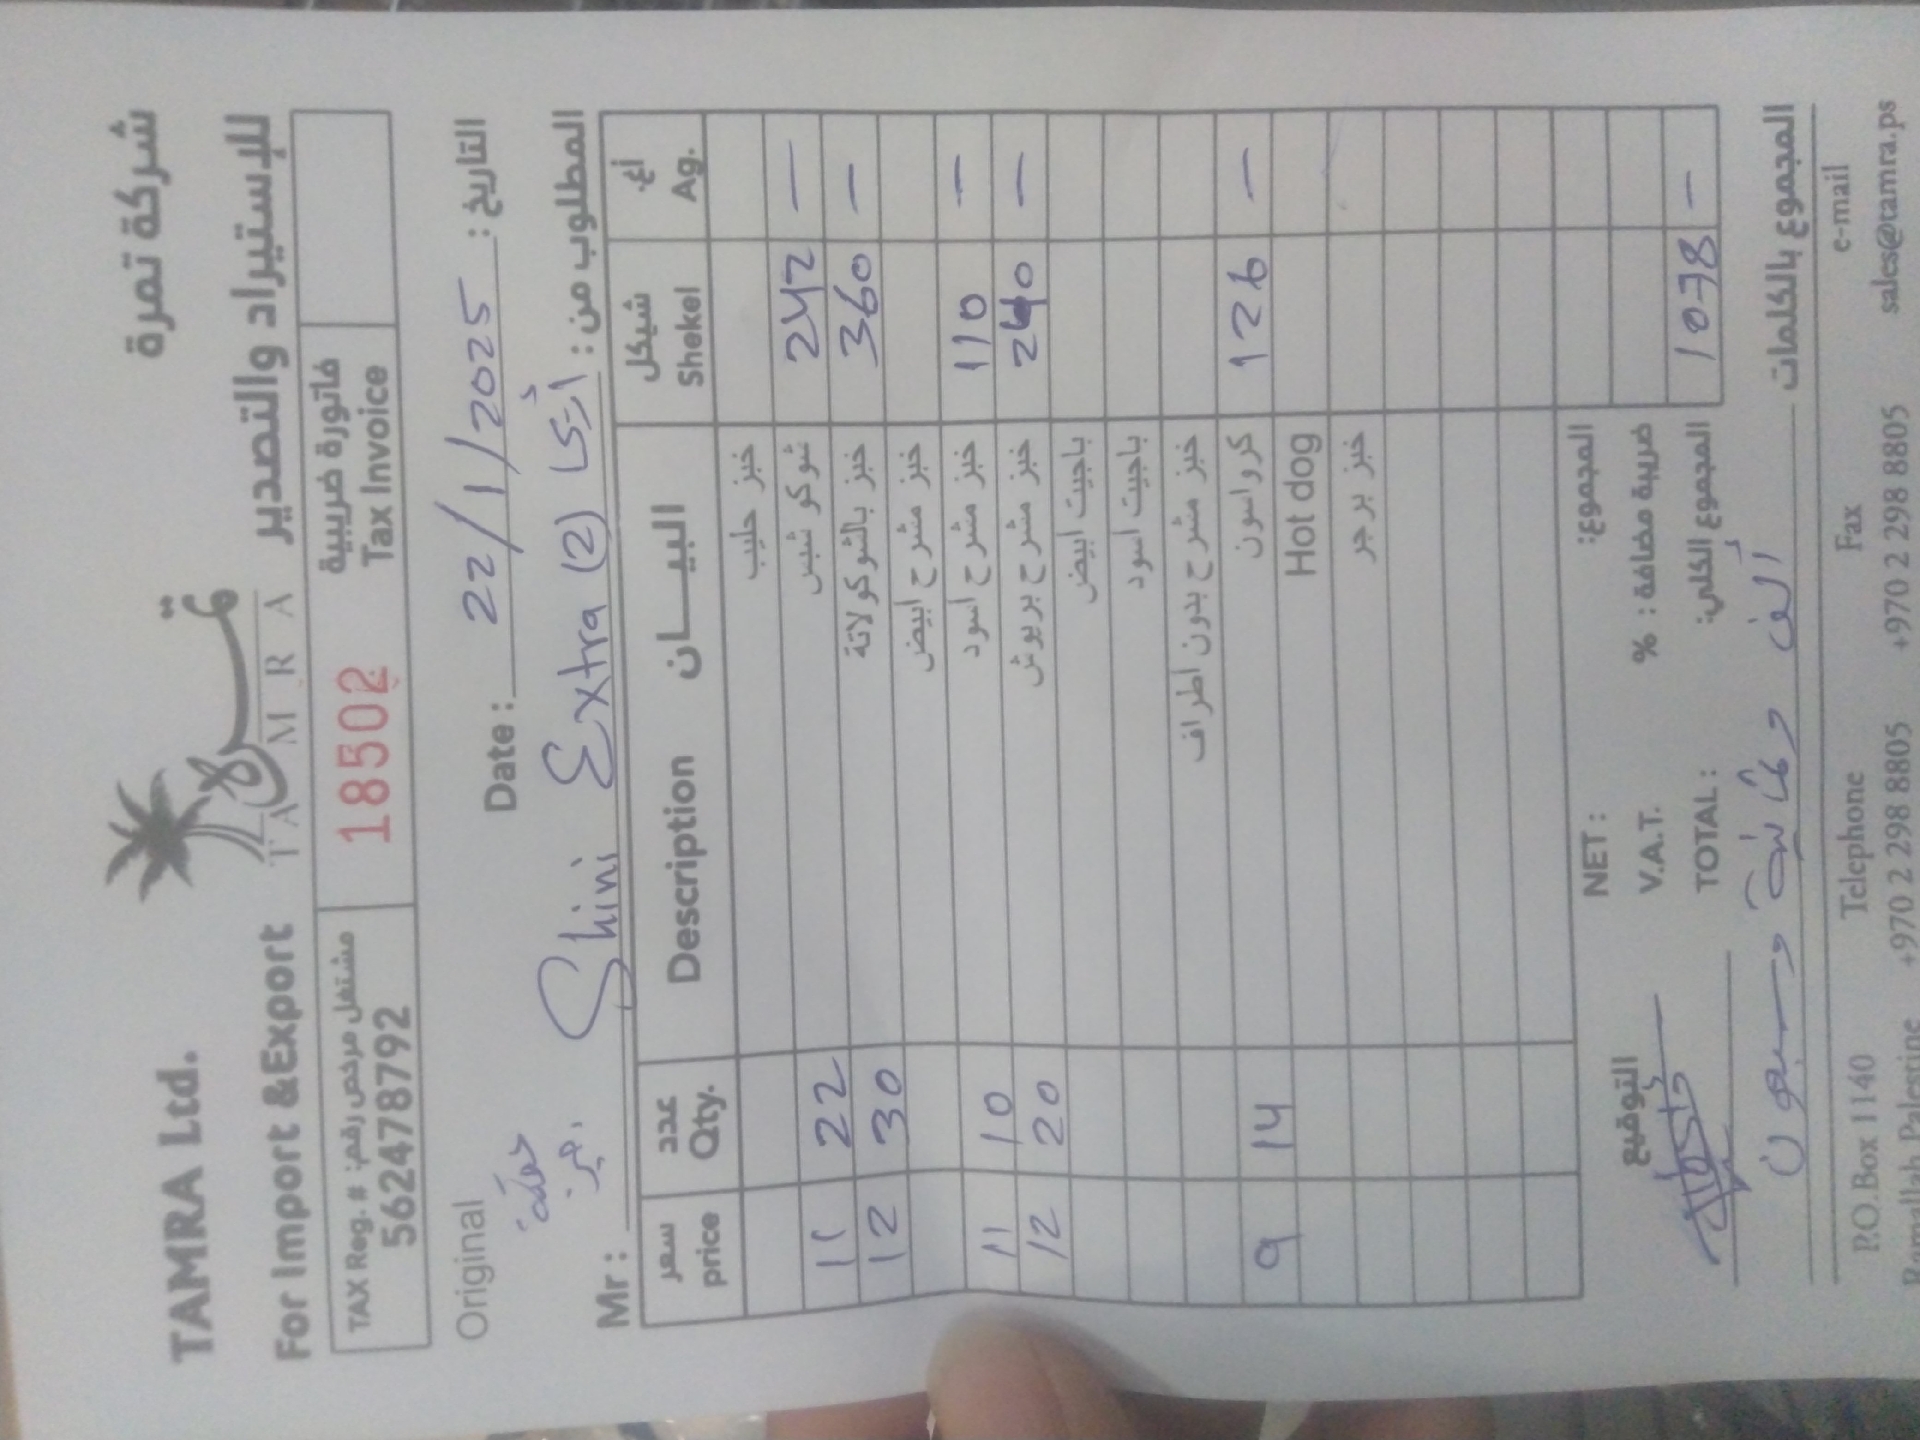 TAMRA Ltd. شركة تمرة
For Import &Export للإستيراد والتصدير
تمرة
TAMRA
TAX Reg. #: مشتغل مرخص رقم
562478792
18502
فاتورة ضريبية
Tax Invoice
Original
Date: 22/1/2025 التاريخ:
Mr: Shini Extra (2) المطلوب من:
سعر عدد البيـــان شيكل أغ.
price Qty. Description Shekel Ag.
خبز حليب
11 22 شوكو شبس 242 —
12 30 خبز بالشوكولاتة 360 —
خبز مشرح ابيض
11 10 خبز مشرح اسود 110 —
12 20 خبز مشرح بريوش 240 —
باجيت ابيض
باجيت اسود
خبز مشرح بدون اطراف
9 14 كرواسون 126 —
Hot dog
خبز برجر
NET: المجموع:
التوقيع V.A.T. % ضريبة مضافة:
TOTAL: المجموع الكلي: 1078 —
المجموع بالكلمات ألف وثمانية وسبعون
P.O.Box 1140 Telephone Fax e-mail
Ramallah Palestine +970 2 298 8805 +970 2 298 8805 sales@tamra.ps